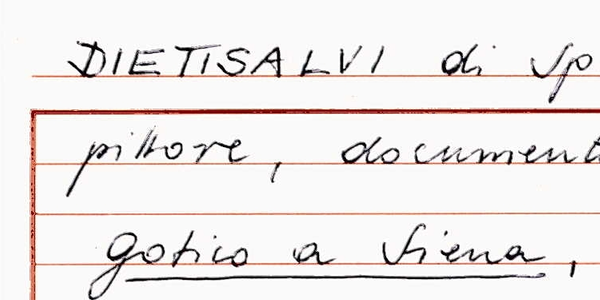 DIETISALVI di Sp
pittore, document
gotico a Siena,